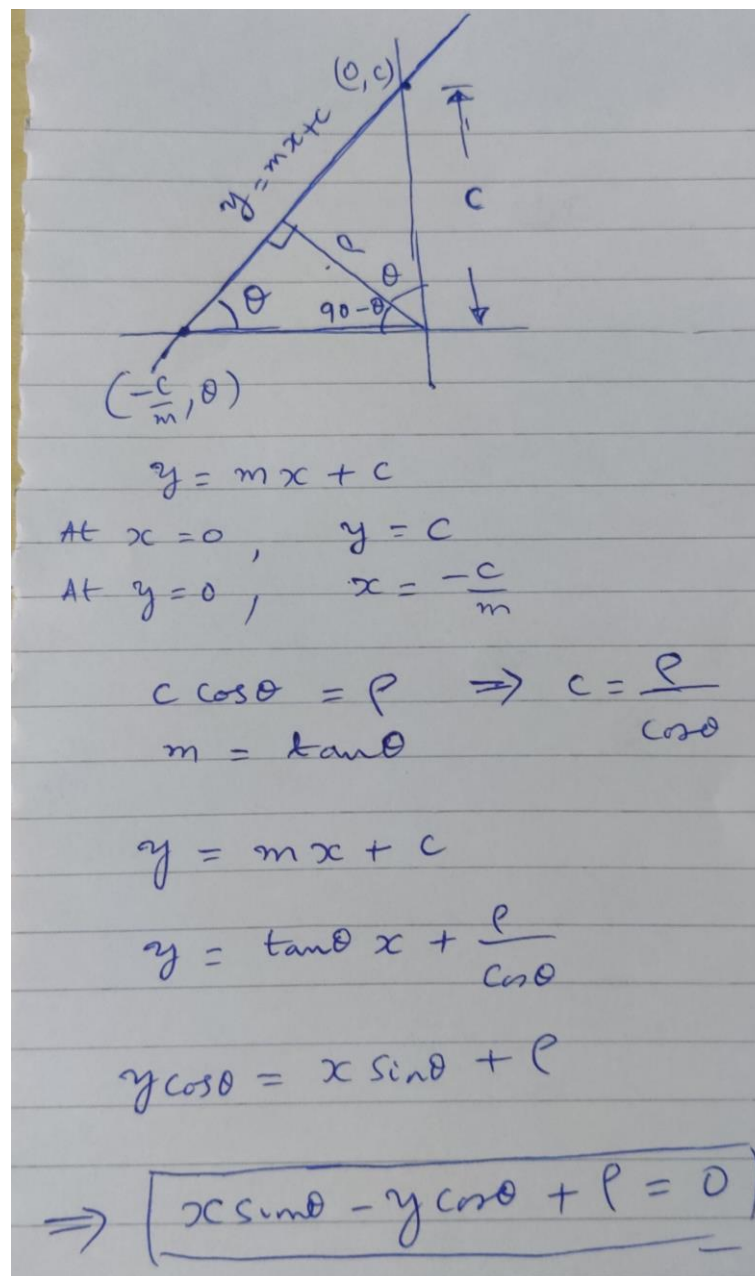 (0,c)
y = mx+c
c
ρ
θ
θ
90-θ
(-c/m, θ)
y = mx + c
At x = 0, y = c
At y = 0, x = -c/m
c cosθ = ρ ⇒ c = ρ/cosθ
m = tanθ
y = mx + c
y = tanθ x + ρ/cosθ
y cosθ = x sinθ + ρ
⇒ x sinθ - y cosθ + ρ = 0